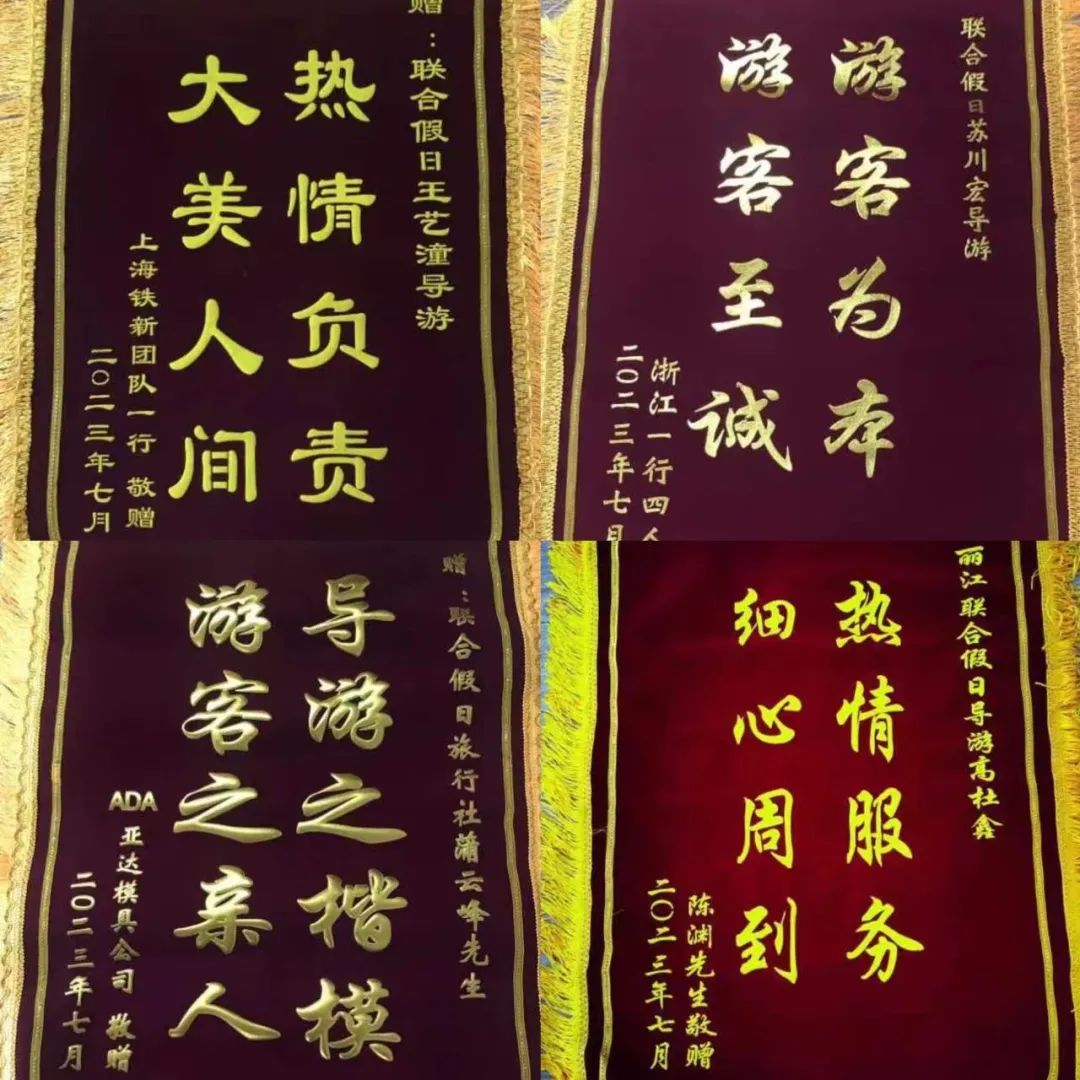 赠：联合假日王艺潼导游
热情负责
大美人间
上海铁新团队一行 敬赠
二〇二三年七月
联合假日苏川宏导游
游客为本
游客至诚
浙江一行四人
二〇二三年七月
赠：联合假日旅行社蒲云峰先生
导游之楷模
游客之亲人
ADA 亚达模具公司 敬赠
二〇二三年七月
丽江联合假日导游高杜鑫
热情服务
细心周到
陈渊先生敬赠
二〇二三年七月